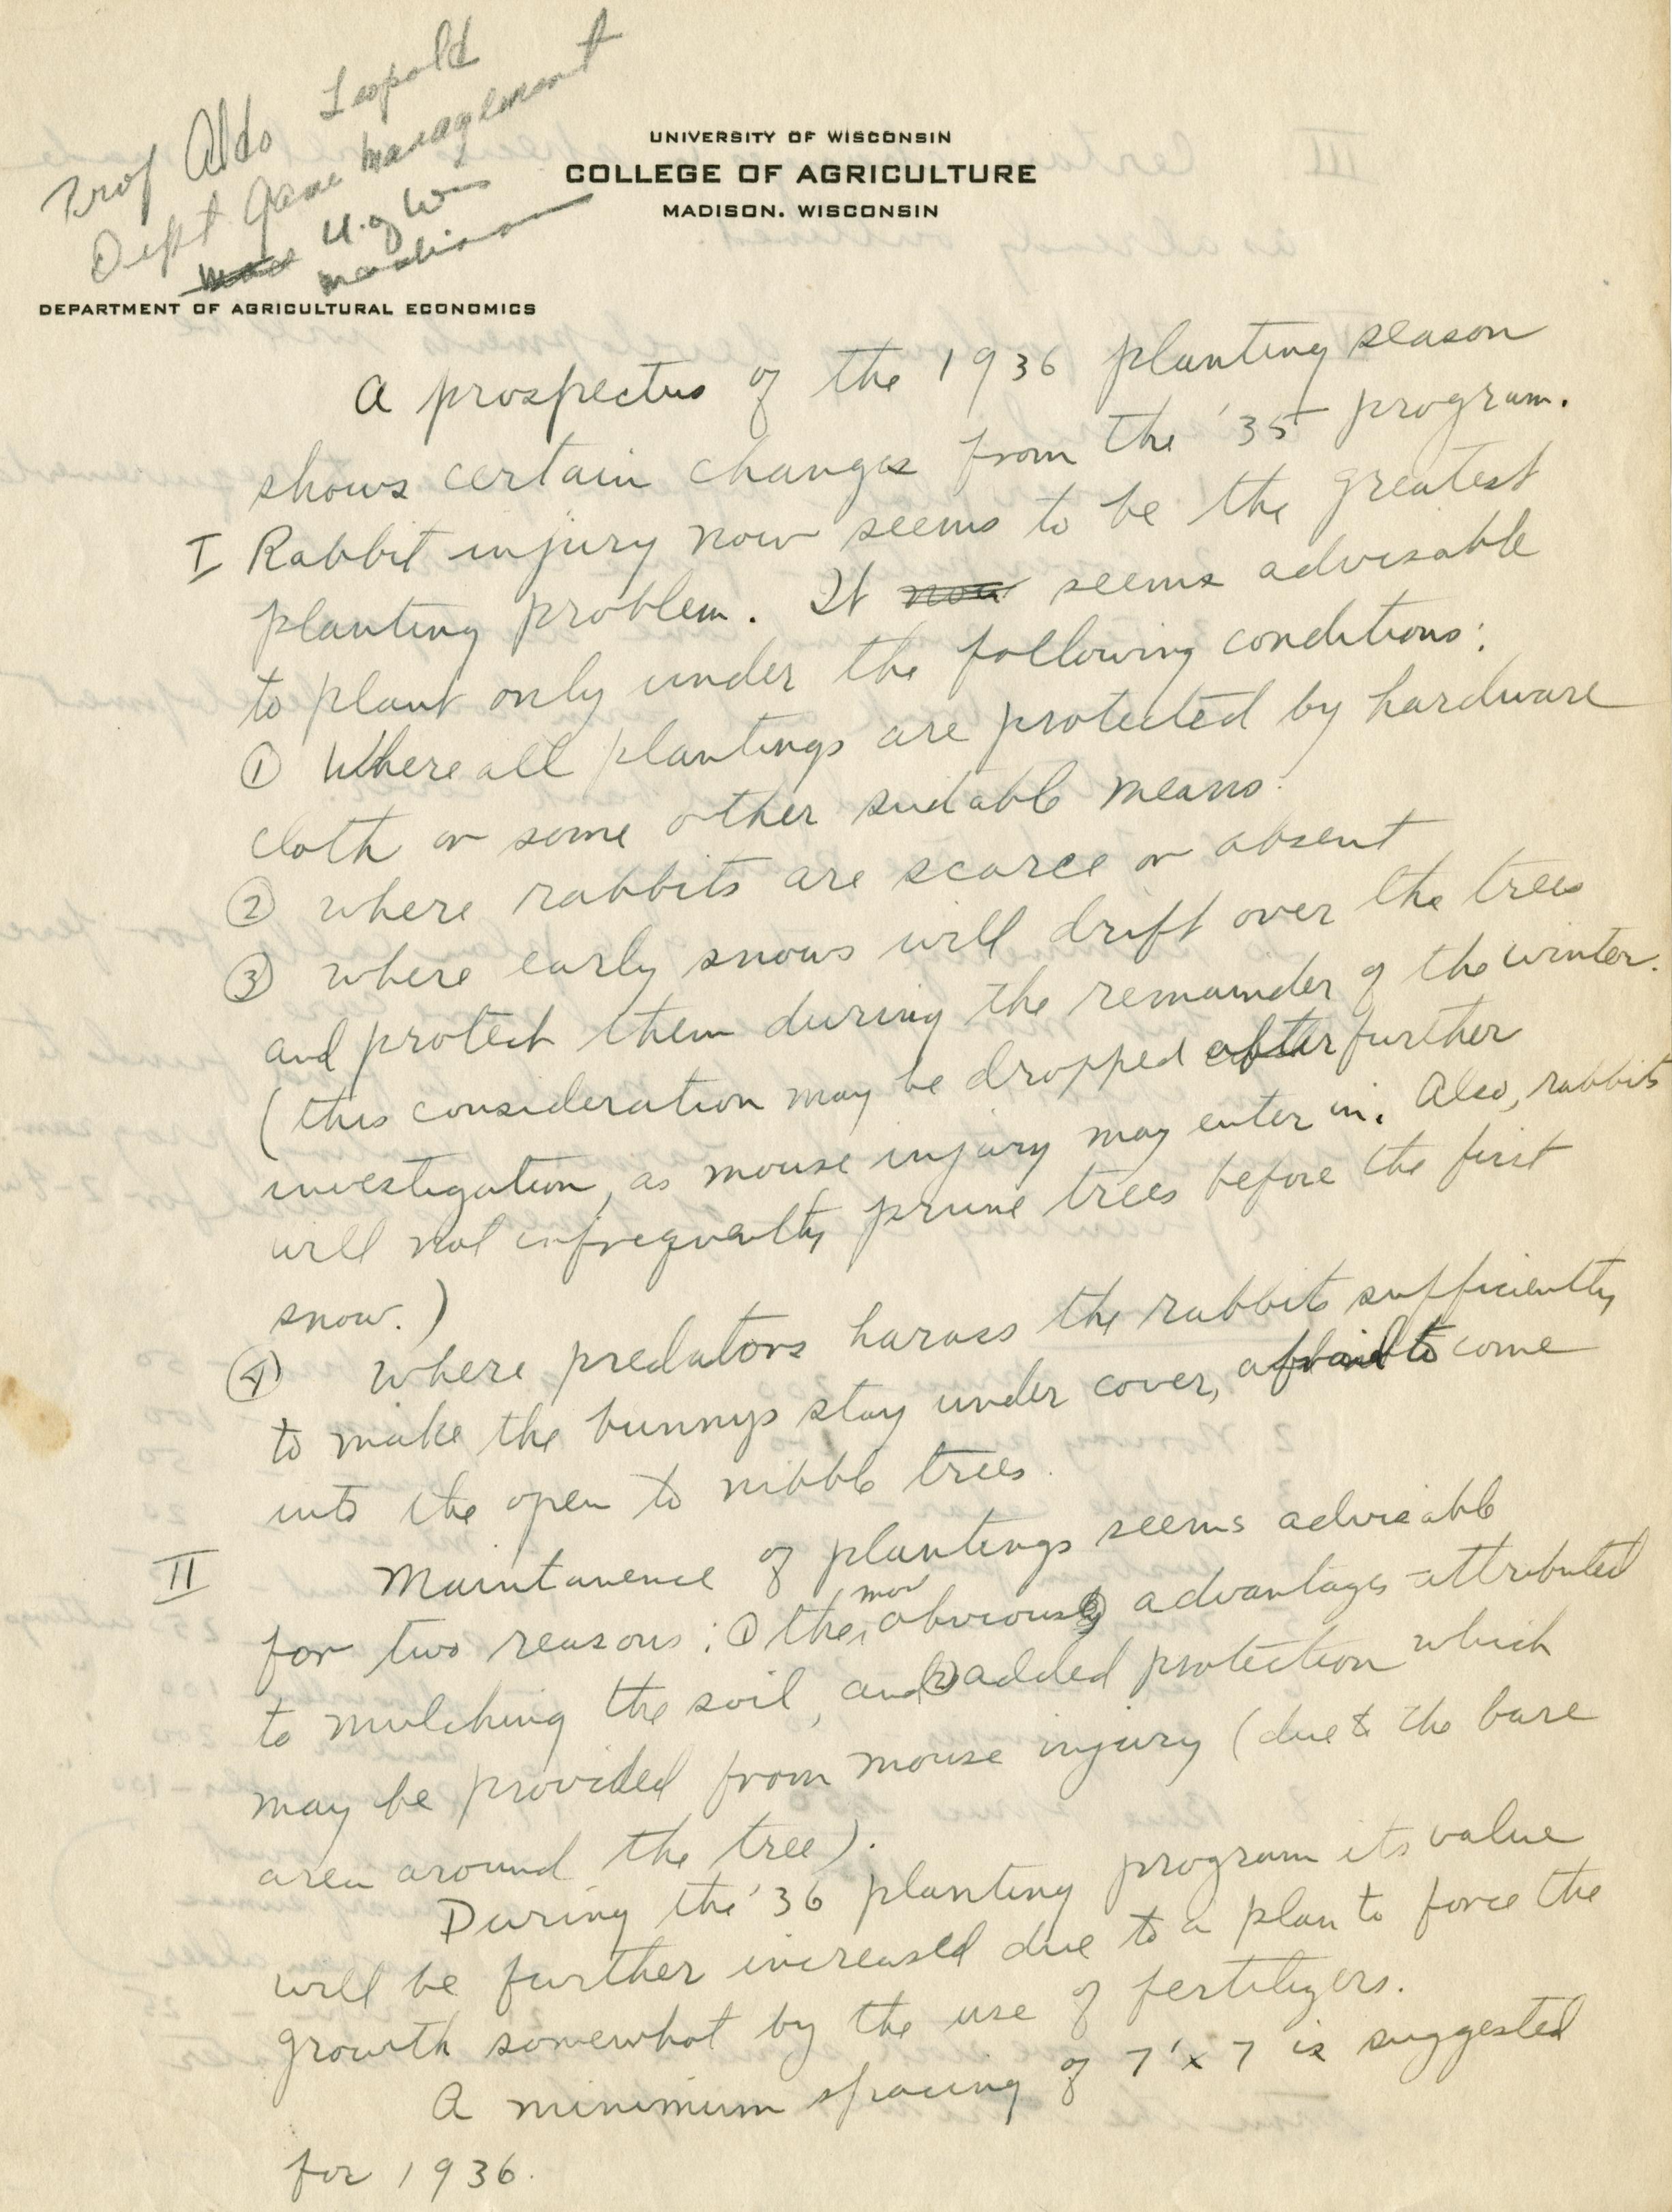 Prof Aldo Leopold
Dept Game Management
U. of Wis
Madison
UNIVERSITY OF WISCONSIN
COLLEGE OF AGRICULTURE
MADISON. WISCONSIN
DEPARTMENT OF AGRICULTURAL ECONOMICS
A prospectus of the 1936 planting season
shows certain changes from the '35 program.
I Rabbit injury now seems to be the greatest
planting problem. It now seems advisable
to plant only under the following conditions:
① Where all plantings are protected by hardware
cloth or some other suitable means.
② where rabbits are scarce or absent
③ where early snows will drift over the trees
and protect them during the remainder of the winter.
(this consideration may be dropped after further
investigation, as mouse injury may enter in. Also, rabbits
will not infrequently prune trees before the first
snow.)
④ where predators harass the rabbits sufficiently
to make the bunnys stay under cover, afraid to come
into the open to nibble trees.
II Maintanence of plantings seems advisable
for two reasons: ① the more obvious advantages attributed
to mulching the soil, and ② added protection which
may be provided from mouse injury (due to the bare
area around the tree).
During the '36 planting program its value
will be further increased due to a plan to force the
growth somewhat by the use of fertilizers.
A minimum spacing of 7' x 7 is suggested
for 1936.